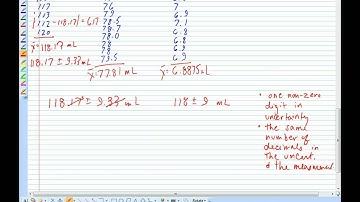 117 76 7
113 79 6.9
|112 - 118.17| = 6.17 78.5 7.1
111 78.7 6.8
120 78.0 6.8
x̄ = 118.17 mL 78 6.9
118.17 ± 9.33 mL 73.5 6.9
x̄ = 77.81 mL x̄ = 6.8875 mL
118.17 ± 9.33 mL 118 ± 9 mL
• one non-zero
digit in
uncertainty
• the same
number of
decimals in
the uncert.
& the measurement